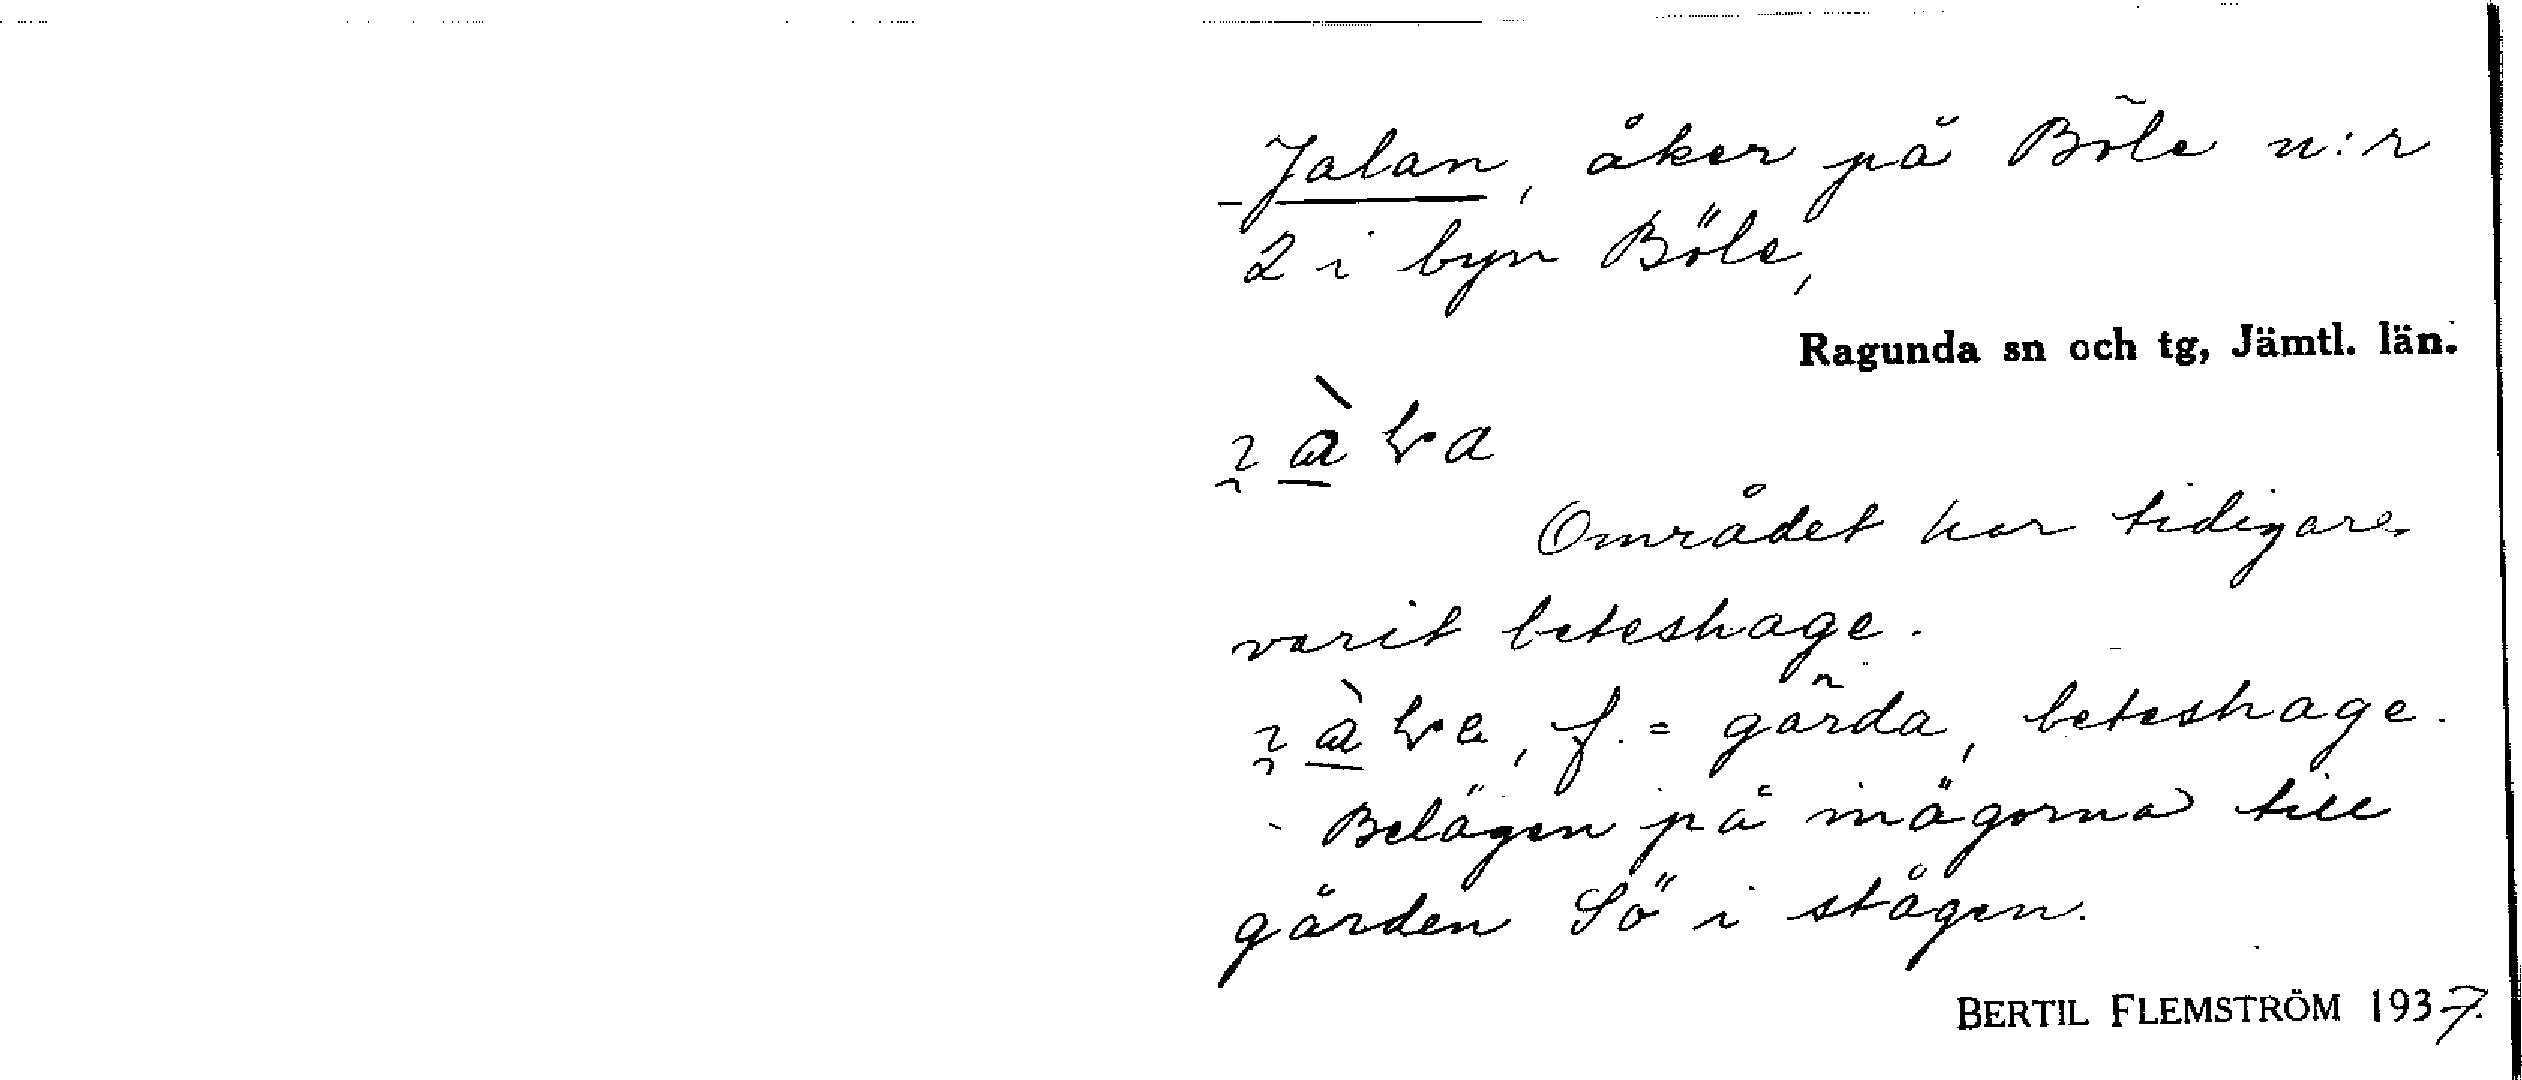 Jalan, åker på Böle n:r
2 i byn Böle,
Ragunda sn och tg, Jämtl. län.
Området har tidigare
varit beteshage.
f. = gärda, beteshage.
- Belägen på inägorna till
gården Sö i stågen.
BERTIL FLEMSTRÖM 1937.